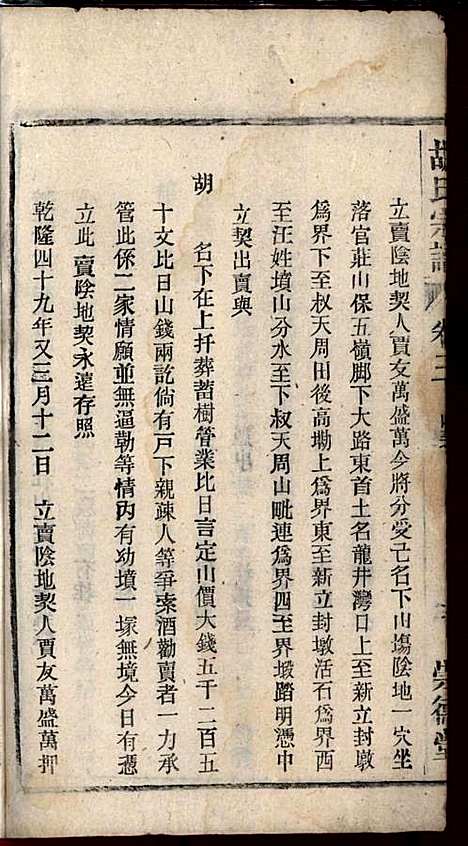 胡氏宗譜 卷三
崇德堂
立賣陰地契人賈友萬盛萬今將分受己名下山塲陰地一穴坐
落官莊山保五嶺脚下大路東首土名龍井灣口上至新立封墩
爲界下至叔天周田後高塝上爲界東至新立封墩活石爲界西
至汪姓墳山分水至下叔天周山毗連爲界四至界塅踏明憑中
立契出賣與
胡 名下在上扦葬蓄樹管業比日言定山價大錢五千二百五
十文比日山錢兩訖倘有戸下親疎人等爭索酒勸賣者一力承
管此係二家情願並無逼勒等情丙有幼墳一塚無境今日有憑
立此賣陰地契永遠存照
乾隆四十九年又三月十二日 立賣陰地契人賈友萬盛萬押